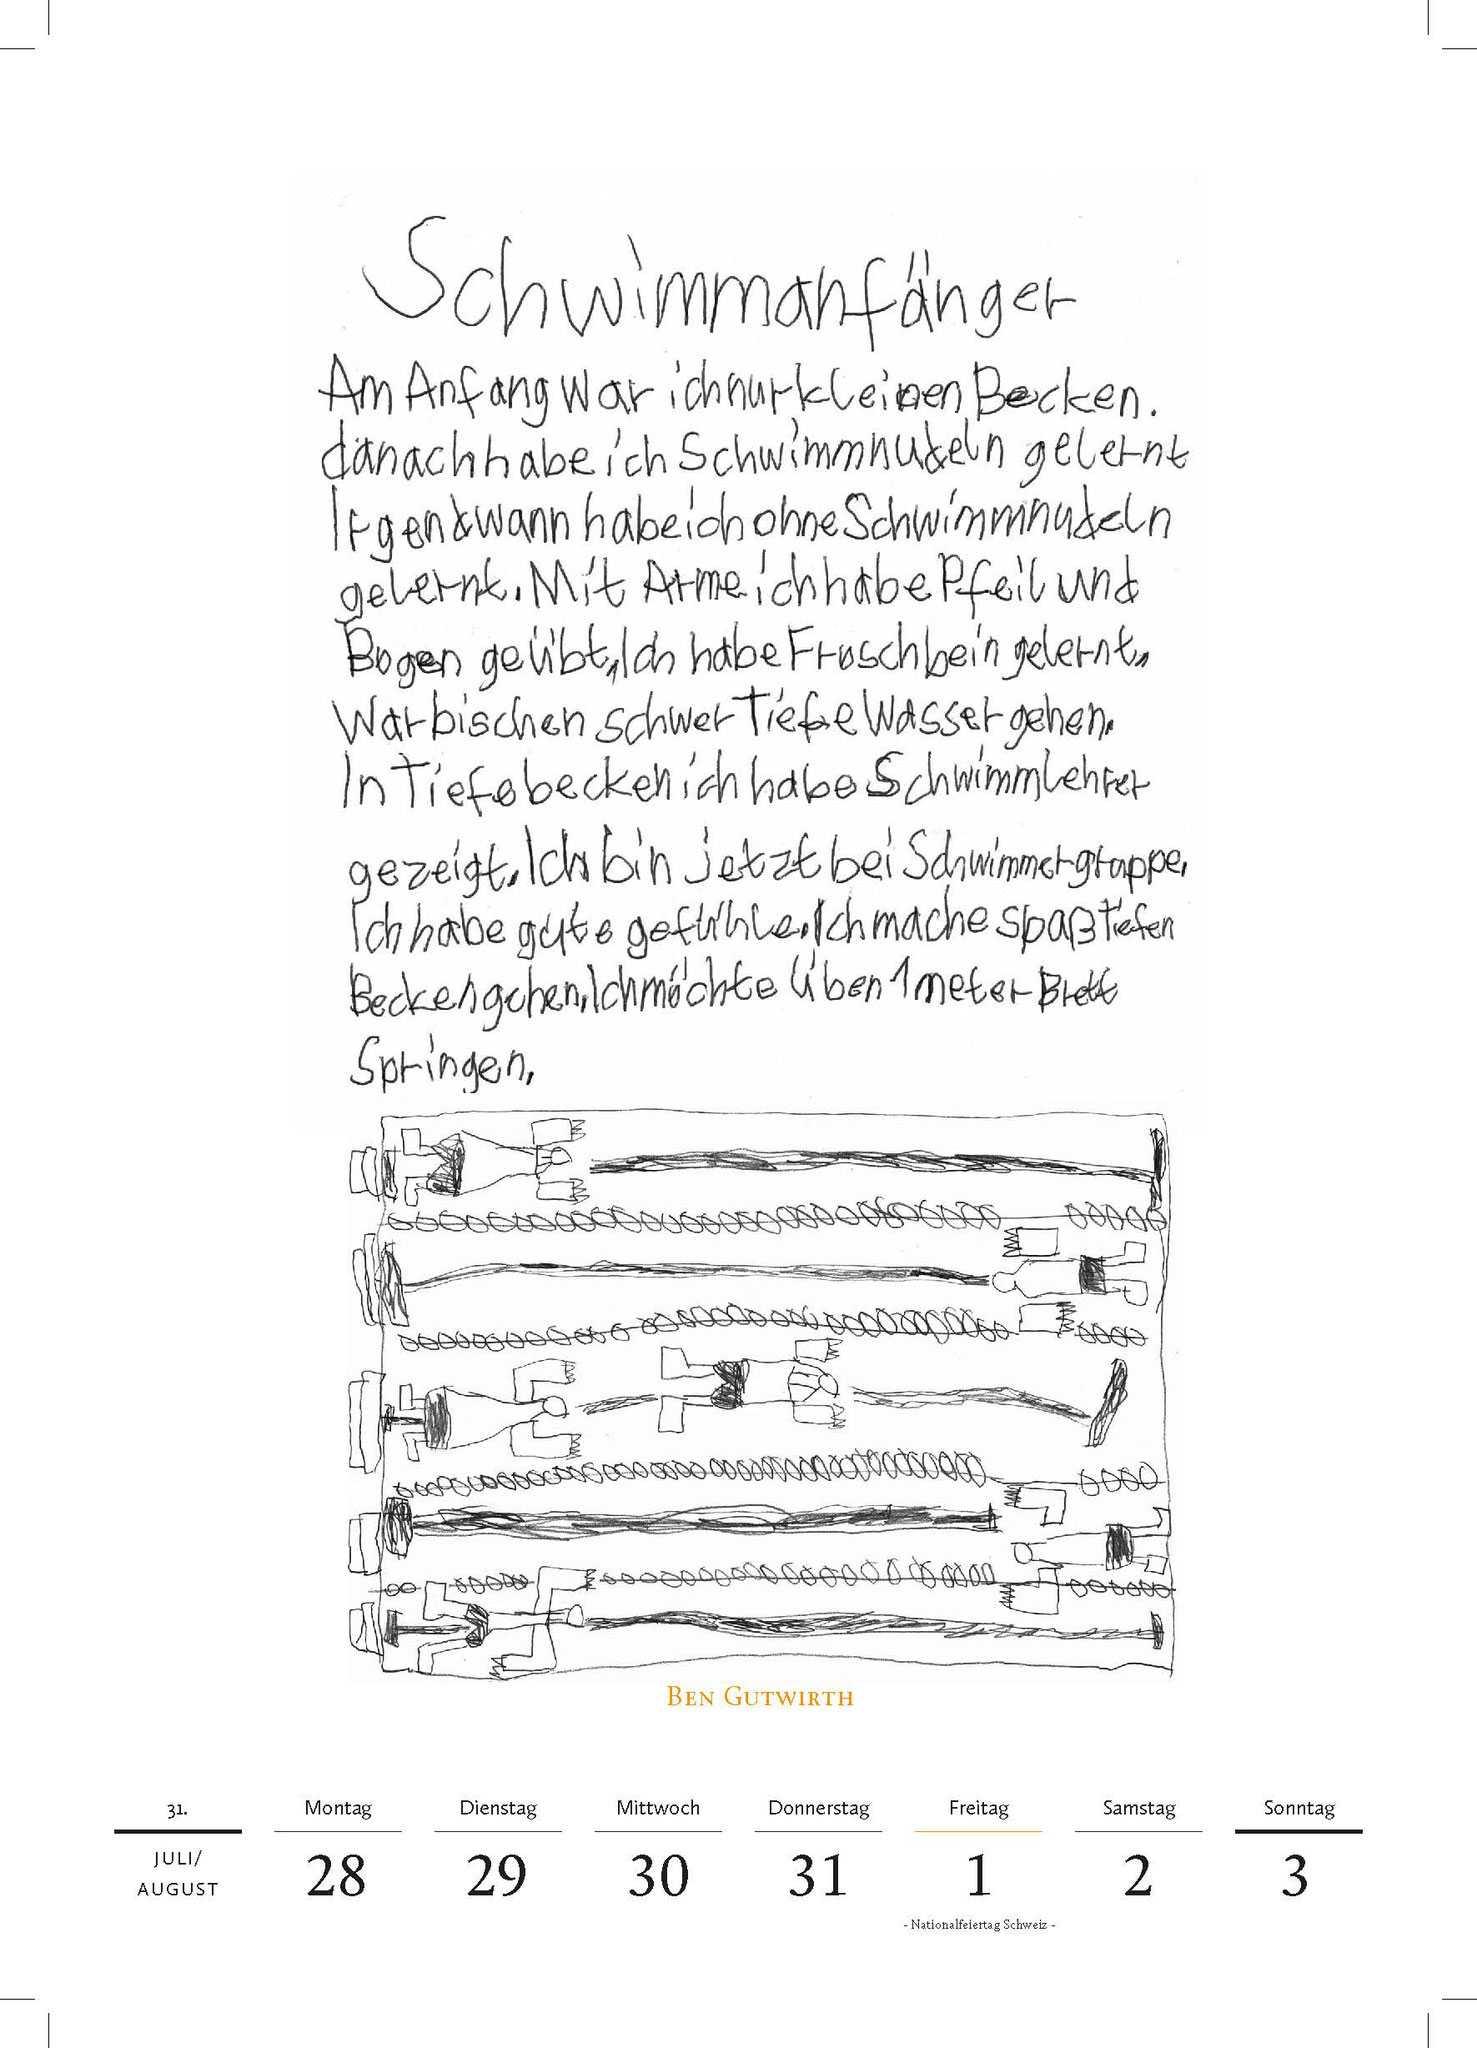 Schwimmanfänger
Am Anfang war ich nur kleinen Becken.
danach habe ich Schwimmnudeln gelernt
Irgendwann habe ich ohne Schwimmnudeln
gelernt. Mit Arme ich habe Pfeil und
Bogen geübt, Ich habe Froschbein gelernt,
War bischen schwer Tiefe Wasser gehen.
In Tiefebecken ich habe Schwimmlehrer
gezeigt. Ich bin jetzt bei Schwimmergruppe,
Ich habe gute gefühle. Ich mache spaß tiefen
Becken gehen, Ich möchte Üben 1 meter Brett
Springen,
BEN GUTWIRTH
31. Montag Dienstag Mittwoch Donnerstag Freitag Samstag Sonntag
JULI/
AUGUST 28 29 30 31 1 2 3
- Nationalfeiertag Schweiz -